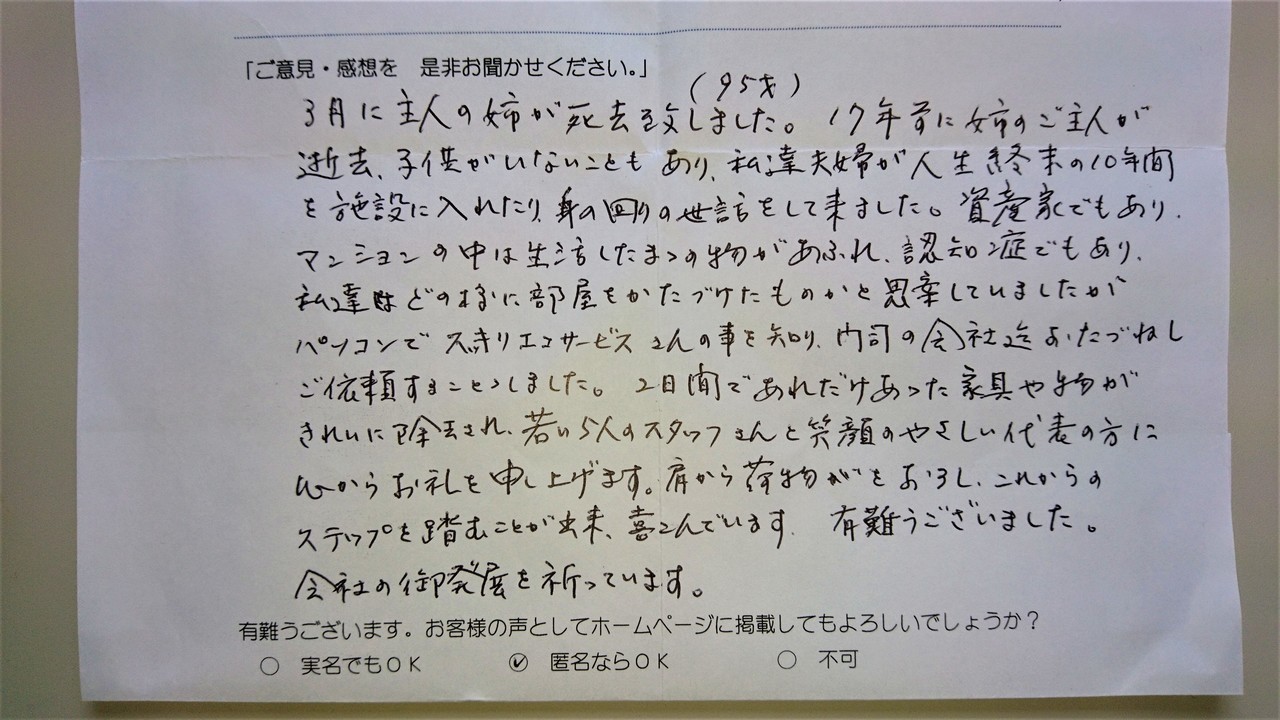 「ご意見・感想を 是非お聞かせください。」
(95才)
3月に主人の姉が死去致しました。 17年前に姉のご主人が
逝去、子供がいないこともあり、私達夫婦が人生終末の10年間
を施設に入れたり、身の回りの世話をして来ました。資産家でもあり、
マンションの中は生活したまゝの物があふれ、認知症でもあり、
私達はどの様に部屋をかたづけたものかと思案していましたが
パソコンでスッキリエコサービスさんの事を知り、門司の会社迄おたづねし
ご依頼することゝしました。 2日間であれだけあった家具や物が
きれいに除去され、若い5人のスタッフさんと笑顔のやさしい代表の方に
心からお礼を申し上げます。肩から荷物がをおろし、これからの
ステップを踏むことが出来、喜こんでいます。 有難うございました。
会社の御発展を祈っています。
有難うございます。お客様の声としてホームページに掲載してもよろしいでしょうか？
○ 実名でもＯＫ ○ 匿名ならＯＫ ○ 不可